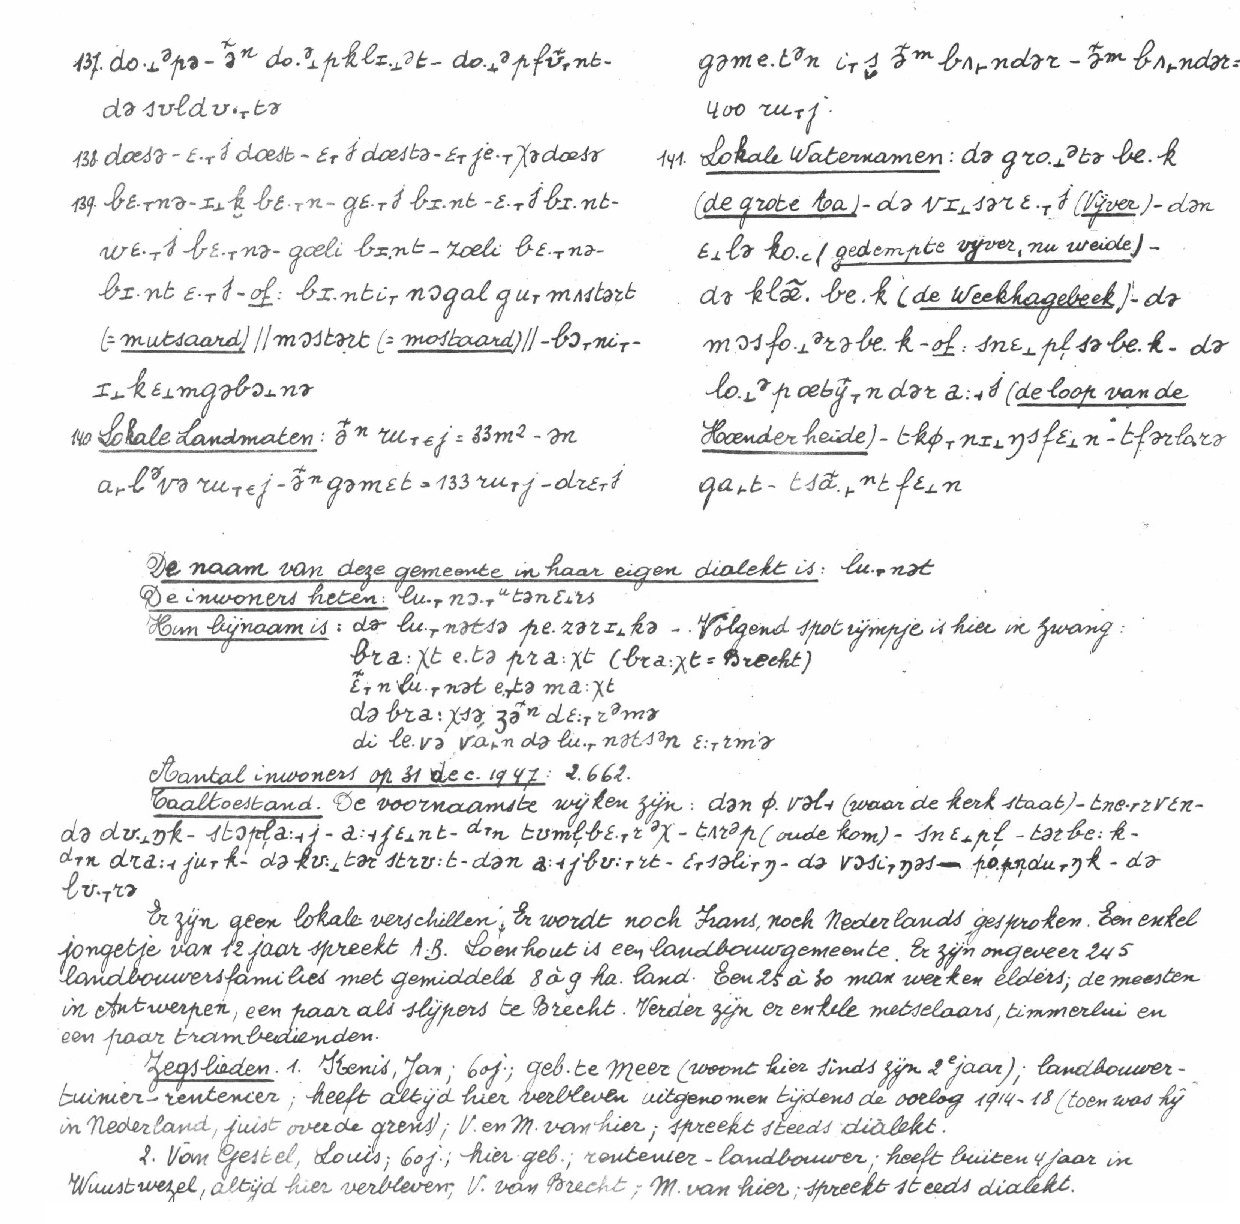 137. do.⊥ᵊpə - ə̃ⁿ do.ᵊ⊥pklɪ.⊥ət - do.⊥ᵊpfṽ┬nt-
də sʋldʋ.┬tə
138. dœsə - ɛ.┬ʃ dœst - ɛ┬ʃ dœstə - ɛ┬je.┬χədœsə
139. bɛ.┬nə - ɪ⊥k bɛ.┬n - gɛ.┬ʃ bɪ.nt - ɛ.┬ʃ bɪ.nt-
wɛ.┬ʃ bɛ.┬nə - gœli bɪ.nt - zœli bɛ.┬nə-
bɪ.nt ɛ.┬ʃ - of: bɪ.nti┬ nɔgal gu┬ mʌstərt
(= mutsaard) // mɔstərt (= mostaard) // - bɔ┬ni┬-
ɪ⊥k ɛ⊥mgəbɔ⊥nə
140 Lokale Landmaten: ə̃ⁿ ru┬ɛj = 33m² - ən
a⊢lᵊvə ru┬ɛj - ə̃ⁿ gəmɛt = 133 ru┬j - drɛ┬ʃ
gəme.tᵊn i┬s ə̃ᵐ bʌ⊢ndər - ə̃ᵐ bʌ⊢ndər =
400 ru┬j.
141. Lokale Waternamen: də gro.⊥ᵊtə be.k
(de grote Aa) - də vɪ⊥sərɛ.┬ʃ (Vijver) - dən
ɛ⊥lə ko.c/ (gedempte vijver, nu weide) -
də klæ̃. be.k (de Weekhagebeek) - də
mɔsfo.⊥ᵊrəbe.k - of: snɛ⊥pl̩sə be.k - də
lo.⊥ᵊp œtỹ┬ndər a:⊣ʃ (de loop van de
Hœnderheide) - tkø┬nɪ⊥ŋsfɛ⊥n - tfərlarə
ga⊢t - tsã.⊢ⁿtfɛ⊥n
De naam van deze gemeente in haar eigen dialekt is: lu.┬nət
De inwoners heten: lu.┬nɔ.┬ᵘtənɛ⊥rs
Hun bijnaam is: də lu.┬nətsə pe.zərɪ⊥kə - . Volgend spotrijmpje is hier in zwang:
bra:χt e.tə pra:χt (bra:χt = Brecht)
ɛ̃┬n lu.┬nət e┬tə ma:χt
də bra:χsə zə̃ⁿ dɛ:┬rᵊmə
di le.və va⊢n də lu.┬nətsᵊn ɛ:┬rmə
Aantal inwoners op 31 dec. 1947: 2.662.
Taaltoestand. De voornaamste wijken zijn: dən ø.vəl⊣ (waar de kerk staat) - tne┬rzvɛn-
də dʋ⊥ŋk - stɔpl̩a:⊣j - a:⊣jɛ⊥nt - ᵈᵊn tʋml̩bɛ.┬rᵊχ - tʌrəp (oude kom) - snɛ⊥pl̩ - tərbe:k -
ᵈᵊn dra:⊣ju┬k - də kʋ⊥tər strʋ:t - dən a:⊣jbʋ:┬rt - ɛ┬səli┬ŋ - də vɔsi┬ŋəs - pe.pn̩du┬ŋk - də
lʋ.┬rə
Er zijn geen lokale verschillen; Er wordt noch Frans, noch Nederlands gesproken. Een enkel
jongetje van 12 jaar spreekt A.B. Loenhout is een landbouwgemeente. Er zijn ongeveer 245
landbouwersfamilies met gemiddeld 8 à 9 ha. land. Een 25 à 30 man werken elders; de meesten
in Antwerpen, een paar als slijpers te Brecht. Verder zijn er enkele metselaars, timmerlui en
een paar trambedienden.
Zegslieden. 1. Kenis, Jan; 60j.; geb. te Meer (woont hier sinds zijn 2ᵉ jaar); landbouwer-
tuinier-rentenier; heeft altijd hier verbleven uitgenomen tijdens de oorlog 1914-18 (toen was hij
in Nederland, juist over de grens); V. en M. van hier; spreekt steeds dialekt.
2. Van Gestel, Louis; 60j.; hier geb.; rentenier-landbouwer; heeft buiten 4 jaar in
Wuustwezel, altijd hier verbleven; V. van Brecht; M. van hier; spreekt steeds dialekt.